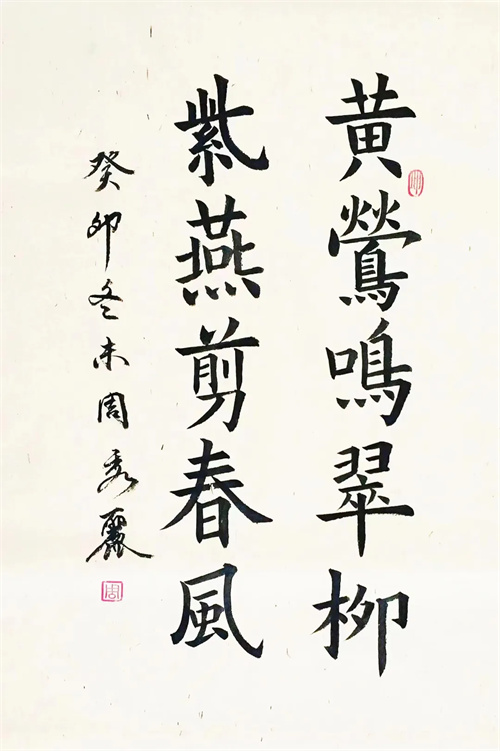 黄鶯鳴翠柳
紫燕剪春風
癸卯冬末周秀麗
周